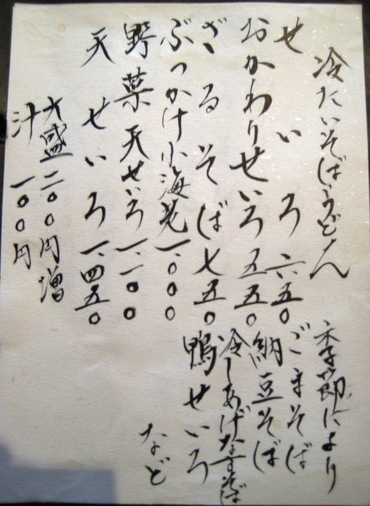 冷たいそばうどん
せいろ 六五〇
おかわりせいろ 五五〇
ざるそば 七五〇
ぶっかけ小海老 一、〇〇〇
野菜天せいろ 一、一〇〇
天せいろ 一、四五〇
大盛 二〇〇円増
汁 一〇〇円
季節により
ごまそば
納豆そば
冷しあげなすそば
鴨せいろ
など